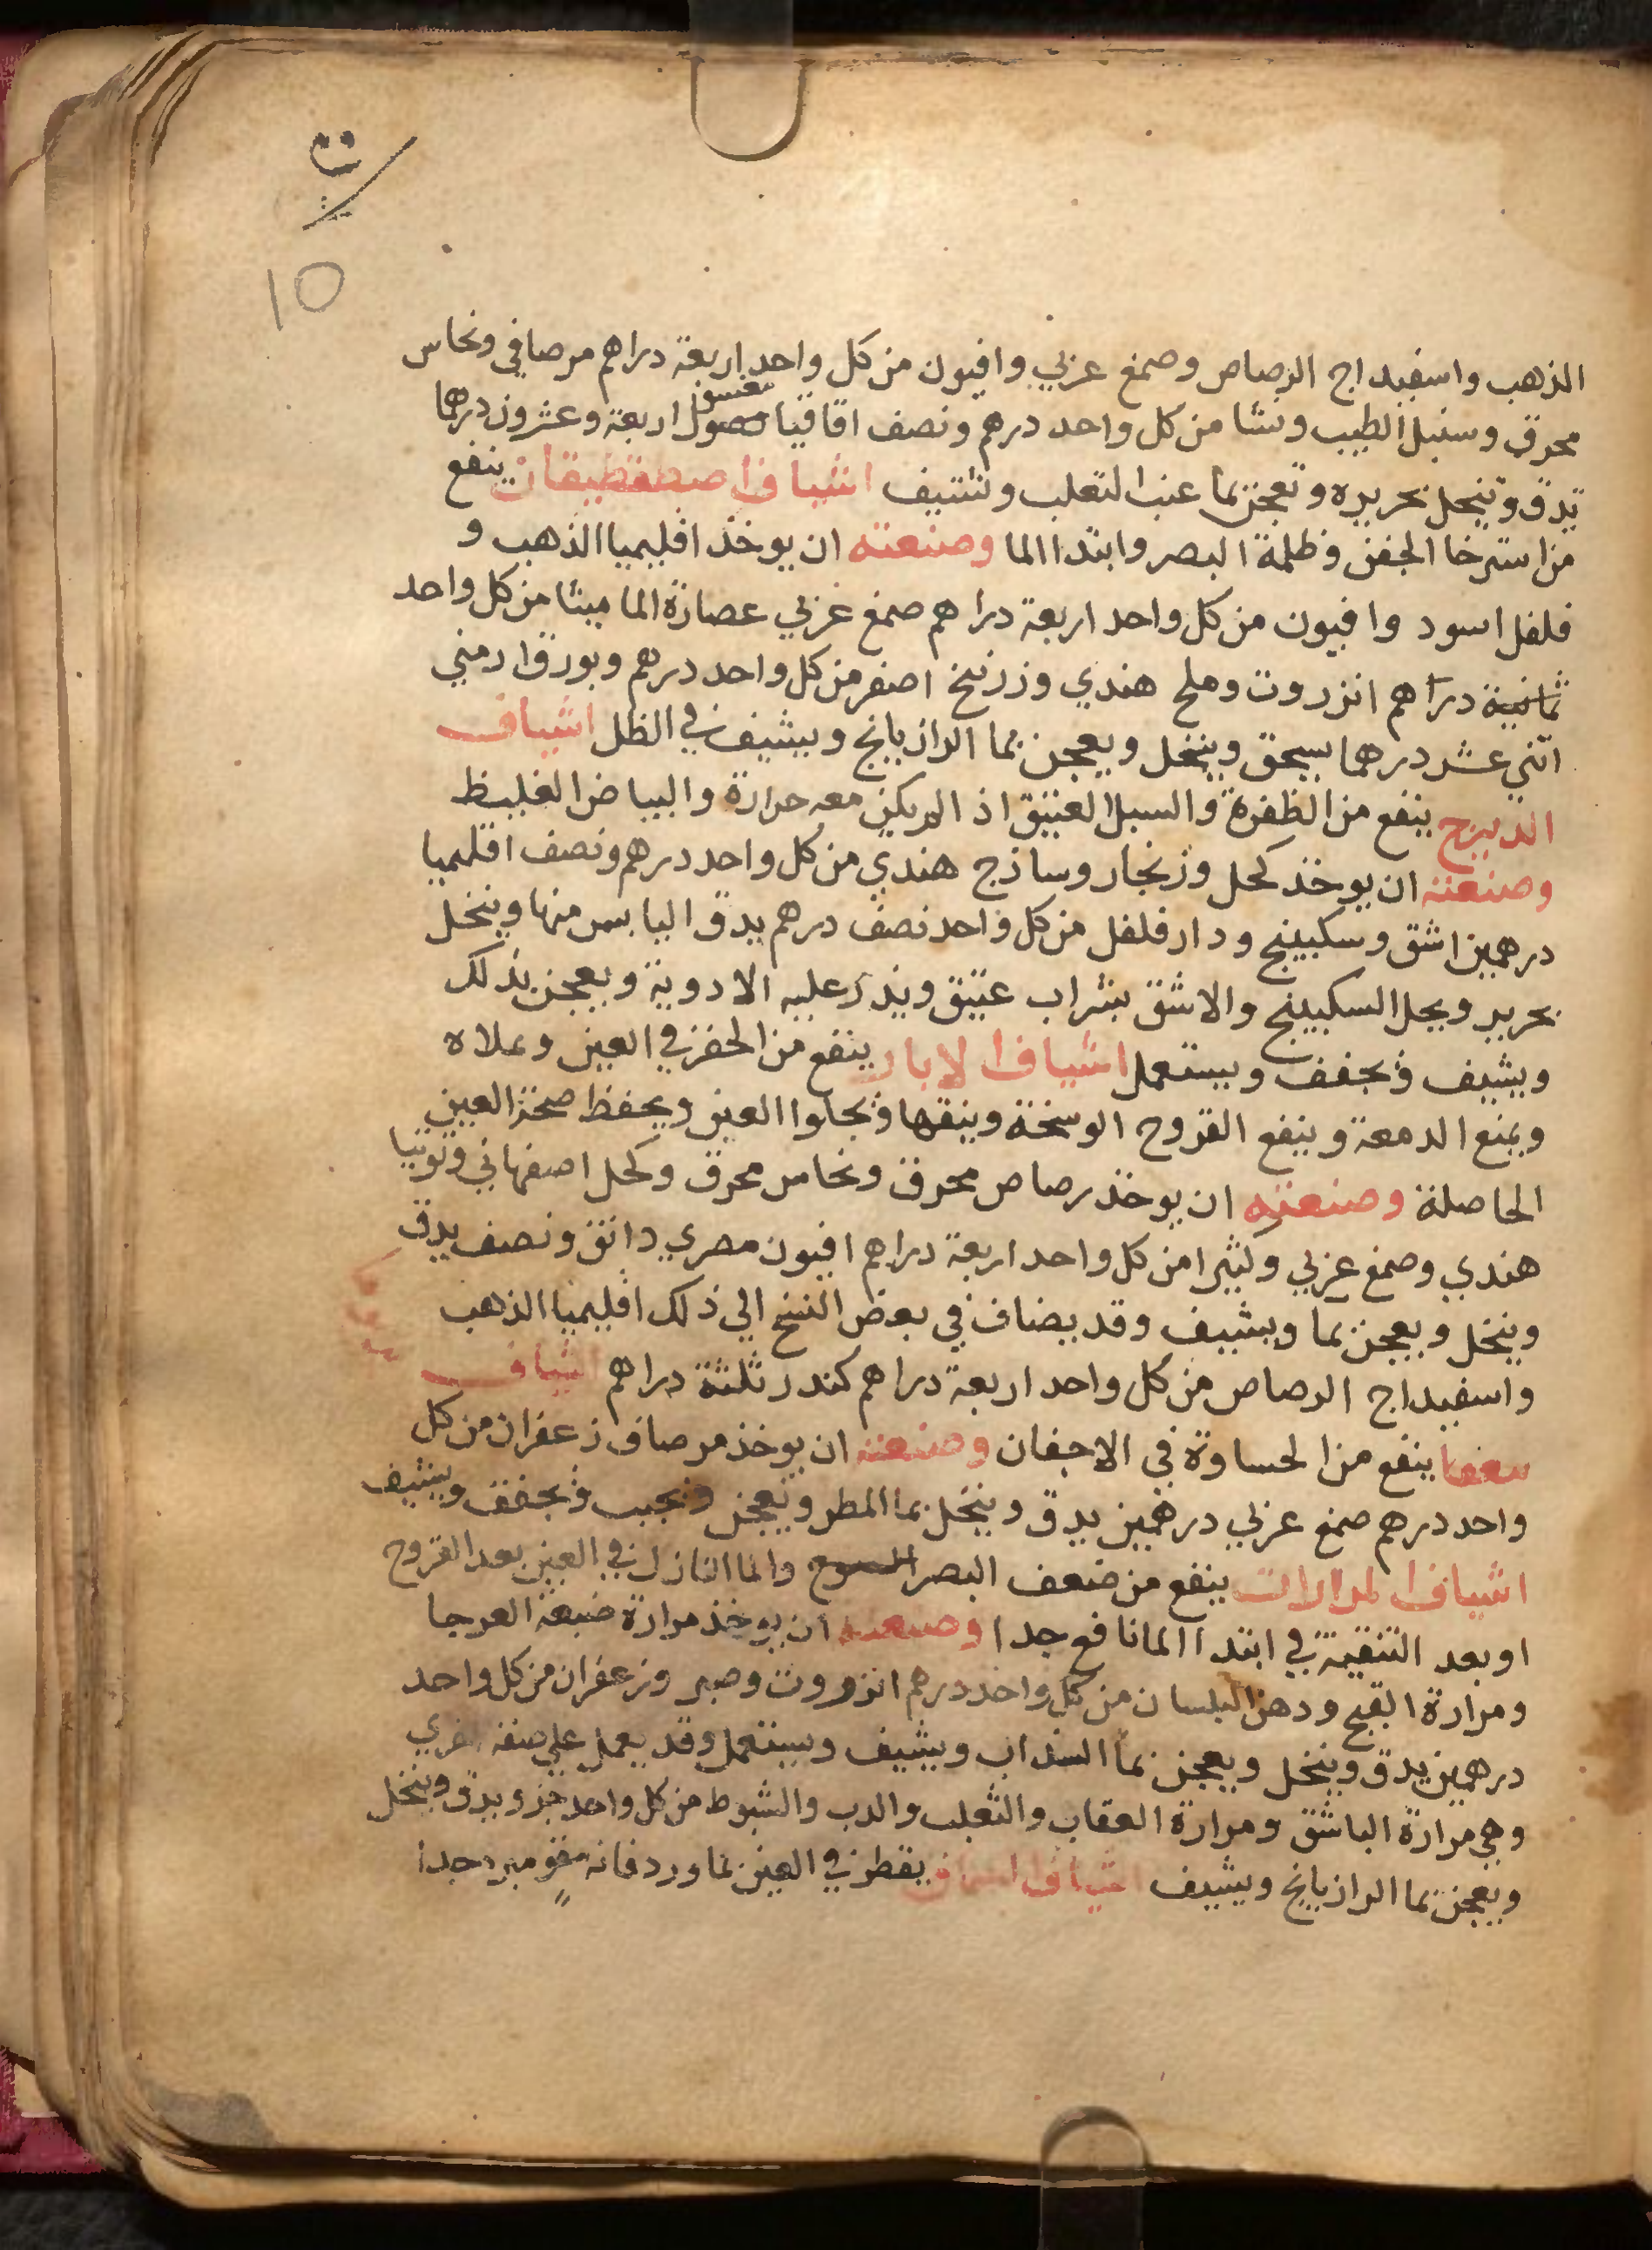 10
الذهب واسفيداج الرصاص وصمغ عربي وافيون من كل واحد اربعة دراهم مر صافي ونحاس
محرق وسنبل الطيب ونشا من كل واحد درهم ونصف اقاقيا مغسول اربعة وعشرون درهما
تدق وتنخل بحريره وتعجن بما عنب الثعلب وتشيف اشياف اصطفطيقان ينفع
من استرخا الجفن وظلمة البصر وابتدا الما وصنعته ان يوخذ اقليميا الذهب و
فلفل اسود وافيون من كل واحد اربعة دراهم صمغ عربي عصارة الماميثا من كل واحد
ثمانية دراهم انزروت وملح هندي وزرنيخ اصفر من كل واحد درهم وبورق ارمني
اثني عشر درهما يسحق وينخل ويعجن بما الرازيانج ويشيف في الظل اشياف
الديزج ينفع من الظفرة والسبل العتيق اذ الم يكن معه حرارة والبياض الغليظ
وصنعته ان يوخذ كحل وزنجار وساذج هندي من كل واحد درهم ونصف اقليميا
درهمين اشق وسكبينج ودار فلفل من كل واحد نصف درهم يدق اليابس منها وينخل
بحرير ويحل السكبينج والاشق بشراب عتيق ويذر عليه الادوية ويعجن بذلك
ويشيف ويجفف ويستعمل اشياف الابار ينفع من الحفر في العين وعلاه
ويمنع الدمعة وينفع القروح الوسخة وينقها ويجلوا العين ويحفظ صحة العين
الحاصلة وصنعته ان يوخذ رصاص محرق ونحاس محرق وكحل اصفهاني وتوتيا
هندي وصمغ عربي وكثيرا من كل واحد اربعة دراهم افيون مصري دانق ونصف يدق
وينخل ويعجن بما ويشيف وقد يضاف في بعض النسخ الي ذلك اقليميا الذهب
واسفيداج الرصاص من كل واحد اربعة دراهم كندر ثلثة دراهم اشياف
ينفع من الحساوة في الاجفان وصنعته ان يوخذ مر صاف زعفران من كل
واحد درهم صمغ عربي درهمين يدق وينخل بما المطر ويعجن ويحبب ويجفف ويشيف
اشياف المرارات ينفع من ضعف البصر والما النازل في العين بعد القروح
او بعد التنقية في ابتدا الما نافع جدا وصنعته ان يوخذ مرارة ضبعة العرجا
ومرارة القبج ودهن البلسان من كل واحد درهم انزروت وصبر وزعفران من كل واحد
درهمين يدق وينخل ويعجن بما السداب ويشيف ويستعمل وقد يعمل علي صفة اخري
وهي مرارة الباشق ومرارة العقاب والثعلب والدب والشبوط من كل واحد جزو يدق وينخل
ويعجن بما الرازيانج ويشيف اشياف يقطر في العين بما ورد فانه مقو مبرد جدا